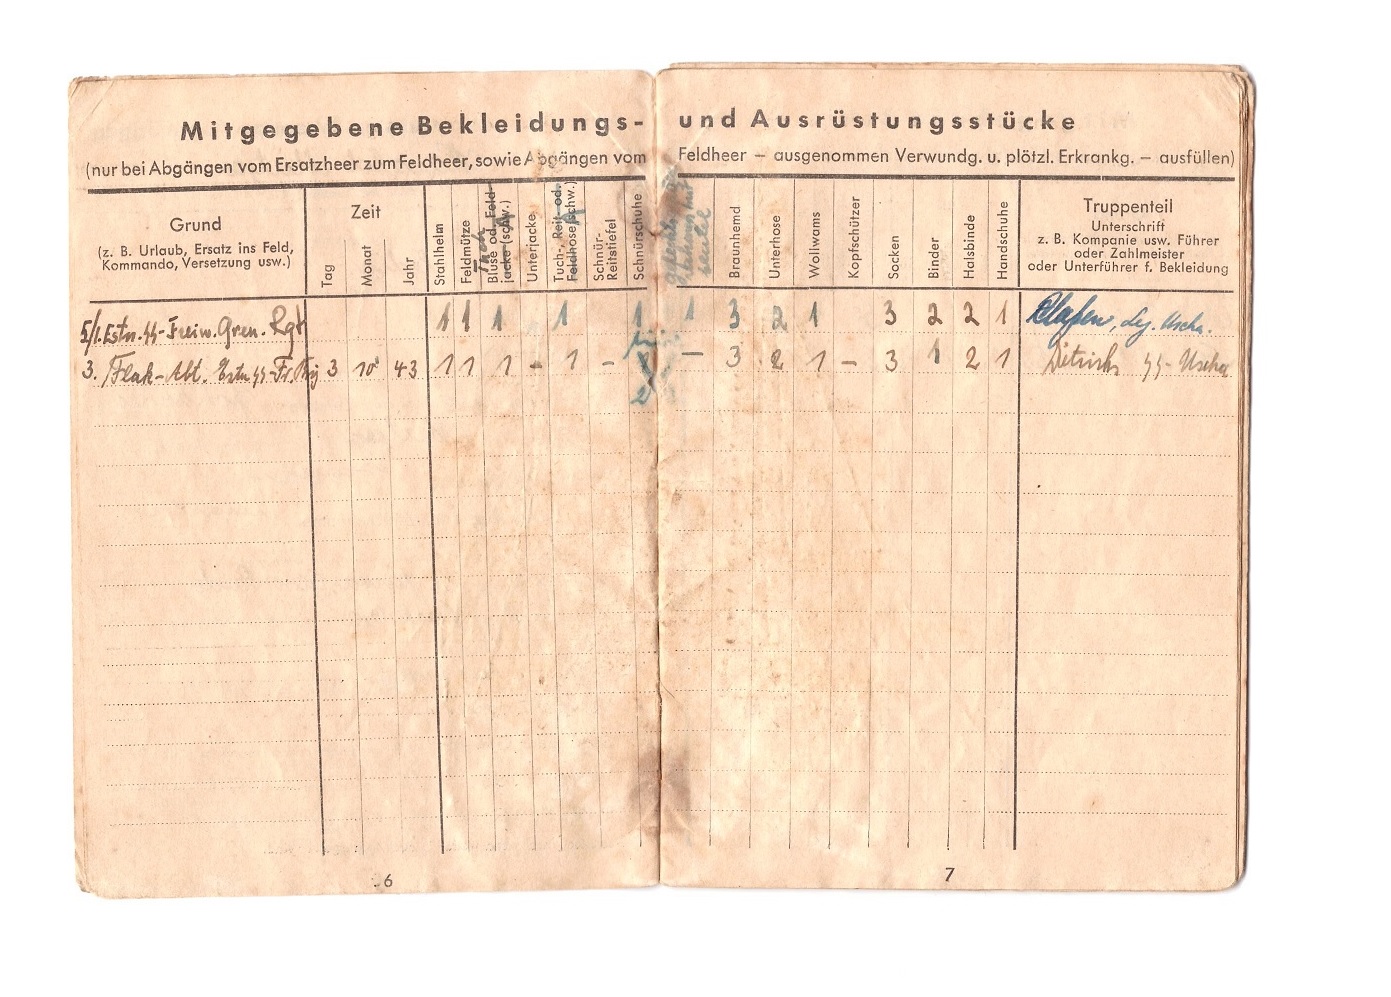 Mitgegebene Bekleidungs- und Ausrüstungsstücke
(nur bei Abgängen vom Ersatzheer zum Feldheer, sowie Abgängen vom Feldheer – ausgenommen Verwundg. u. plötzl. Erkrankg. – ausfüllen)
Grund
(z. B. Urlaub, Ersatz ins Feld,
Kommando, Versetzung usw.)
Zeit
Tag
Monat
Jahr
Stahlhelm
Feldmütze
Tuch
Bluse od. Feld-
jacke (schw.)
Unterjacke
Tuch-, Reit- od.
Feldhose (schw.)
Schnür-
Reitstiefel
Schnürschuhe
Braunhemd
Unterhose
Wollwams
Kopfschützer
Socken
Binder
Halsbinde
Handschuhe
Truppenteil
Unterschrift
z. B. Kompanie usw. Führer
oder Zahlmeister
oder Unterführer f. Bekleidung
5/1. Estn. SS-Freiw. Gren. Rgt 1 1 1 1 1 1 3 2 1 3 2 2 1 Uscha.
3. Flak-Abt. Estn SS-Fr. Brig 3 10 43 1 1 1 – 1 – 2 – 3 2 1 – 3 1 2 1 Dietrich SS-Uscha
6
7